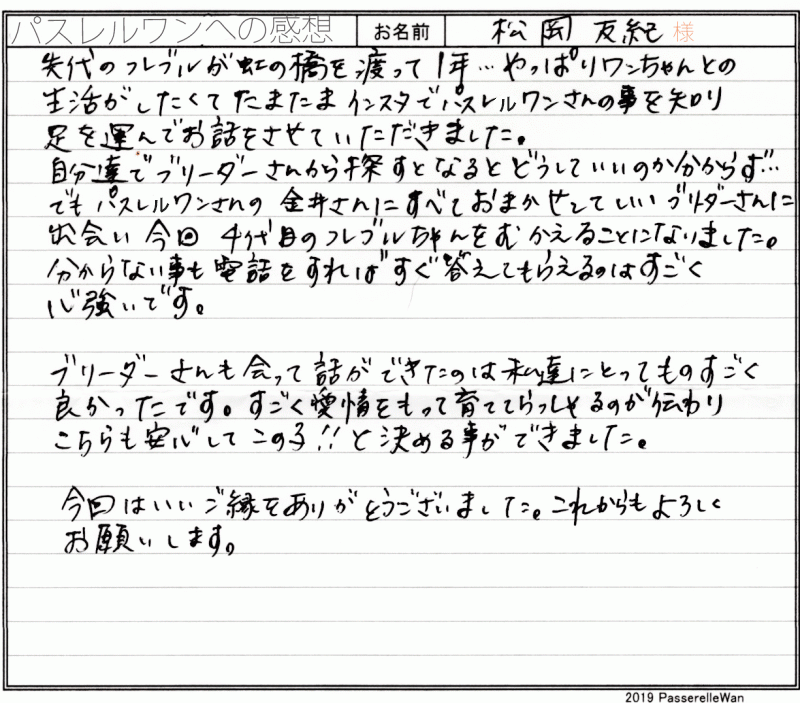 パスレルワンへの感想 お名前 松岡 友紀 様
先代のフレブルが虹の橋を渡って1年…やっぱりワンちゃんとの
生活がしたくてたまたまインスタでパスレルワンさんの事を知り
足を運んでお話をさせていただきました。
自分達でブリーダーさんから探すとなるとどうしていいのか分からず…
でもパスレルワンさんの金井さんにすべておまかせしていいブリダーさんに
出会い今回4代目のフレブルちゃんをむかえることになりました。
分からない事も電話をすればすぐ答えてもらえるのはすごく
心強いです。
ブリーダーさんも会って話ができたのは私達にとってものすごく
良かったです。すごく愛情をもって育ててらっしゃるのが伝わり
こちらも安心してこの子!!と決める事ができました。
今回はいいご縁をありがとうございました。これからもよろしく
お願いします。
2019 PasserelleWan